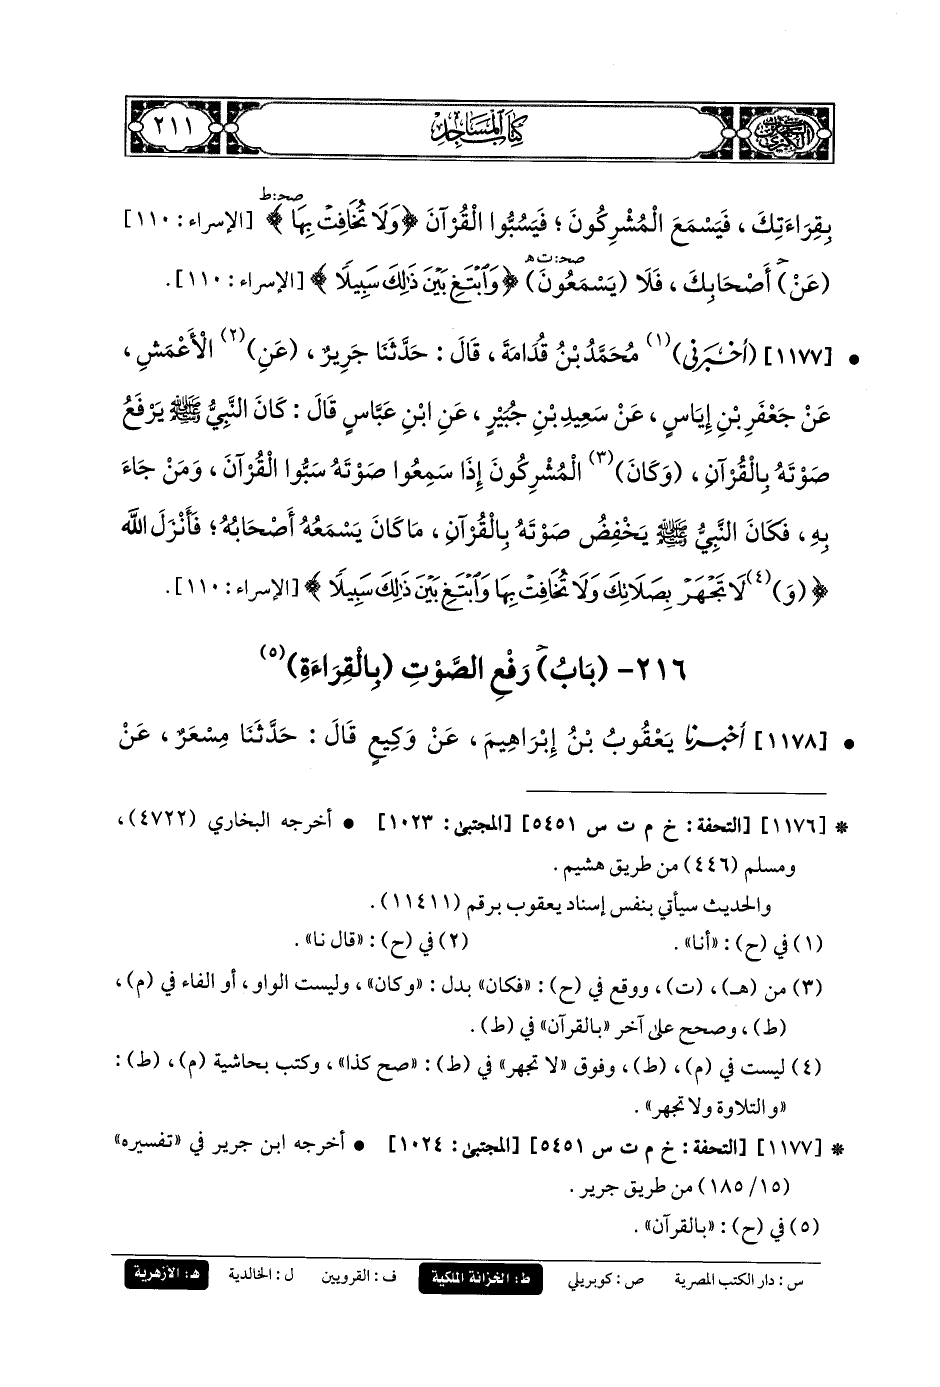 كتاب المساجد
٢١١
صحـ: ط
بِقِرَاءَتِكَ ، فَيَسْمَعَ الْمُشْرِكُونَ ؛ فَيَسُبُّوا الْقُرْآنَ ﴿وَلَا تُخَافِتْ بِهَا﴾ [الإسراء: ١١٠]
صحـ: ت هـ
(عَنْ) أَصْحَابِكَ ، فَلَا (يَسْمَعُونَ) ﴿وَٱبْتَغِ بَيْنَ ذَٰلِكَ سَبِيلًا﴾ [الإسراء: ١١٠].
• [١١٧٧] (أَخْبَرَنِي)(١) مُحَمَّدُ بْنُ قُدَامَةَ ، قَالَ : حَدَّثَنَا جَرِيرٌ ، (عَنِ)(٢) الْأَعْمَشِ ،
عَنْ جَعْفَرِ بْنِ إِيَاسٍ ، عَنْ سَعِيدِ بْنِ جُبَيْرٍ ، عَنِ ابْنِ عَبَّاسٍ قَالَ : كَانَ النَّبِيُّ ﷺ يَرْفَعُ
صَوْتَهُ بِالْقُرْآنِ ، (وَكَانَ)(٣) الْمُشْرِكُونَ إِذَا سَمِعُوا صَوْتَهُ سَبُّوا الْقُرْآنَ ، وَمَنْ جَاءَ
بِهِ ، فَكَانَ النَّبِيُّ ﷺ يَخْفِضُ صَوْتَهُ بِالْقُرْآنِ ، مَا كَانَ يَسْمَعُهُ أَصْحَابُهُ ؛ فَأَنْزَلَ اللَّه
﴿(وَ)(٤) لَا تَجْهَرْ بِصَلَاتِكَ وَلَا تُخَافِتْ بِهَا وَٱبْتَغِ بَيْنَ ذَٰلِكَ سَبِيلًا﴾ [الإسراء: ١١٠].
٢١٦- (بَابُ) رَفْعِ الصَّوْتِ (بِالْقِرَاءَةِ)(٥)
• [١١٧٨] أَخْبَرَنَا يَعْقُوبُ بْنُ إِبْرَاهِيمَ ، عَنْ وَكِيعٍ قَالَ : حَدَّثَنَا مِسْعَرٌ ، عَنْ
* [١١٧٦] [التحفة: خ م ت س ٥٤٥١] [المجتبى: ١٠٢٣] • أخرجه البخاري (٤٧٢٢) ،
ومسلم (٤٤٦) من طريق هشيم .
والحديث سيأتي بنفس إسناد يعقوب برقم (١١٤١١) .
(١) في (ح) : «أنا» . (٢) في (ح) : «قال نا» .
(٣) من (هـ) ، (ت) ، ووقع في (ح) : «فكان» بدل : «وكان» ، وليست الواو ، أو الفاء في (م) ،
(ط) ، وصحح على آخر «بالقرآن» في (ط) .
(٤) ليست في (م) ، (ط) ، وفوق «لا تجهر» في (ط) : «صح كذا» ، وكتب بحاشية (م) ، (ط) :
«والتلاوة ولا تجهر» .
* [١١٧٧] [التحفة: خ م ت س ٥٤٥١] [المجتبى: ١٠٢٤] • أخرجه ابن جرير في «تفسيره»
(١٥/ ١٨٥) من طريق جرير .
(٥) في (ح) : «بالقرآن» .
س : دار الكتب المصرية ص : كوبريلي ط : الخزانة الملكية ف : القرويين ل : الخالدية هـ : الأزهرية